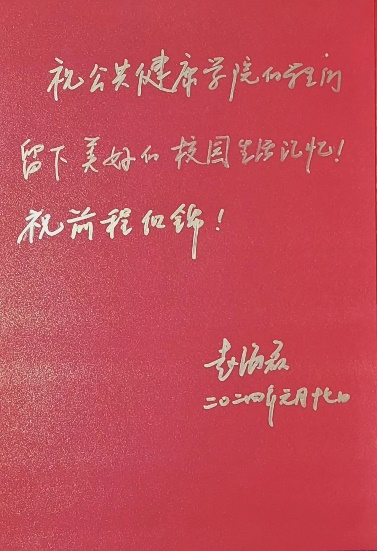 祝公共健康学院的学生们
留下美好的校园生活记忆！
祝前程似锦！
二〇二四年元月十七日